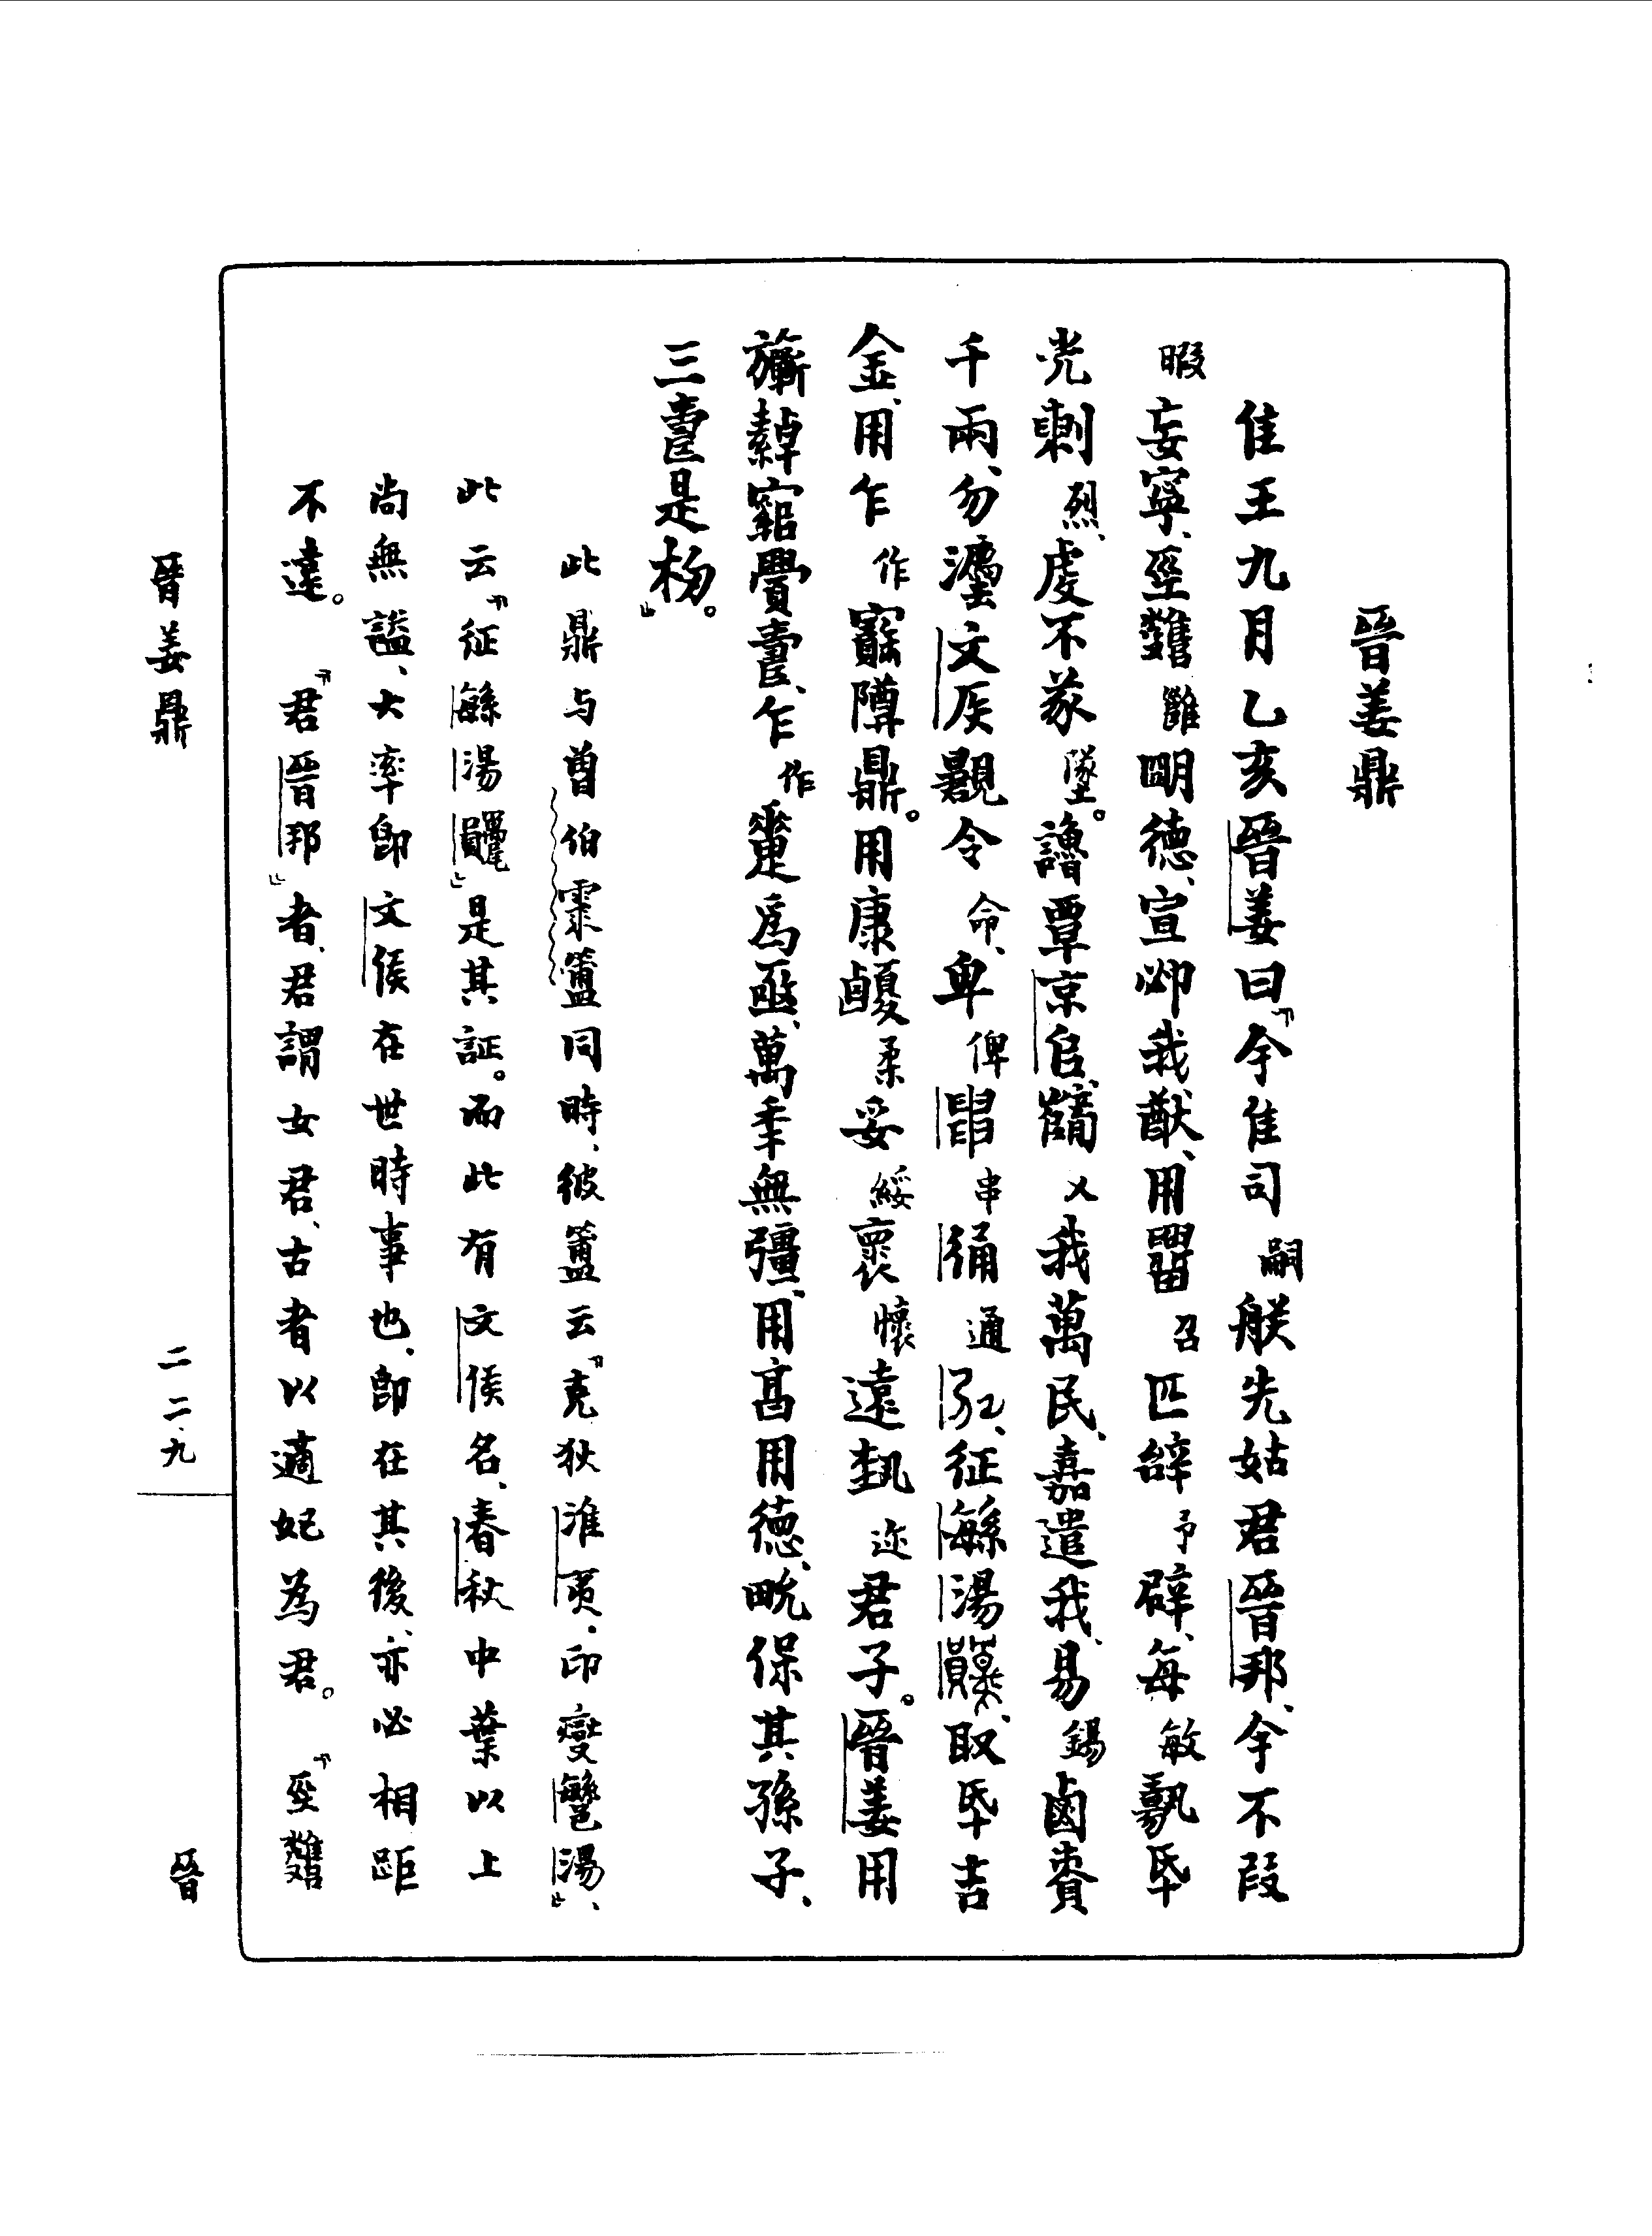 晉姜鼎
隹王九月乙亥晉姜曰『余隹司嗣朕先姑君晉邦、余不叚
暇妄寧、巠雝明德、宣𠨘我猷、用召匹辝予辟、每敏𩰫氒
光剌烈、虔不㒸墜。譖覃京𠂤、乂我萬民、嘉遣我、易錫鹵賷
千兩、勿灋文侯顯令命、卑俾串通弘、征緐湯、取氒吉
金、用乍作寶䵼鼎。用康柔妥綏褱懷遠迩君子。晉姜用
旂綽綰眉壽、乍作疐爲亟、萬年無彊、用亯用德、畯保其孫子、
三壽是㭘。』
此鼎与曾伯霥簠同時、彼簠云『克狄淮夷、印燮繁湯』、
此云『征緐湯』是其証。而此有文侯名、春秋中葉以上
尚無謚、大率卽文侯在世時事也、卽在其後、亦必相距
不遠。『君晉邦』者、君謂女君、古者以適妃為君。『巠雝
晉姜鼎
二二九
晉